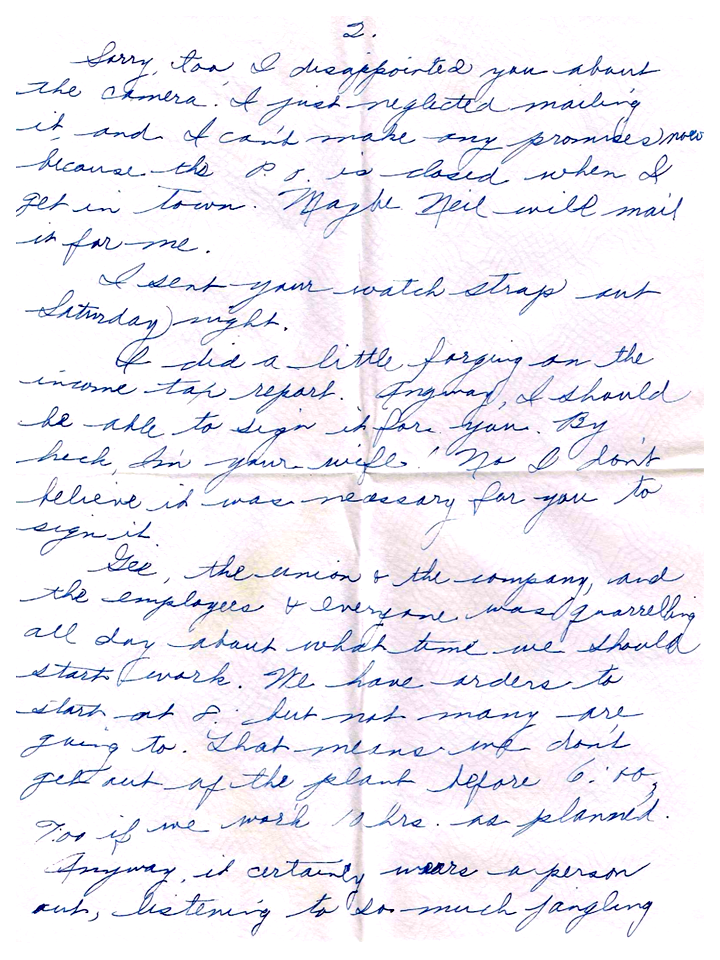 2.
Sorry, too I disappointed you about
the camera. I just neglected mailing
it and I can't make any promises now
because the P.O. is closed when I
get in town. Maybe Neil will mail
it for me.
I sent your watch strap out
Saturday night.
I did a little forging on the
income tax report. Anyway, I should
be able to sign it for you. By
heck, I'm your wife! No I don't
believe it was necessary for you to
sign it.
Gee, the union & the company, and
the employees & everyone was quarrelling
all day about what time we should
start work. We have orders to
start at 8. but not many are
going to. That means we don't
get out of the plant before 6:00,
7:00 if we work 10 hrs. as planned.
Anyway, it certainly wears a person
out, listening to so much jangling